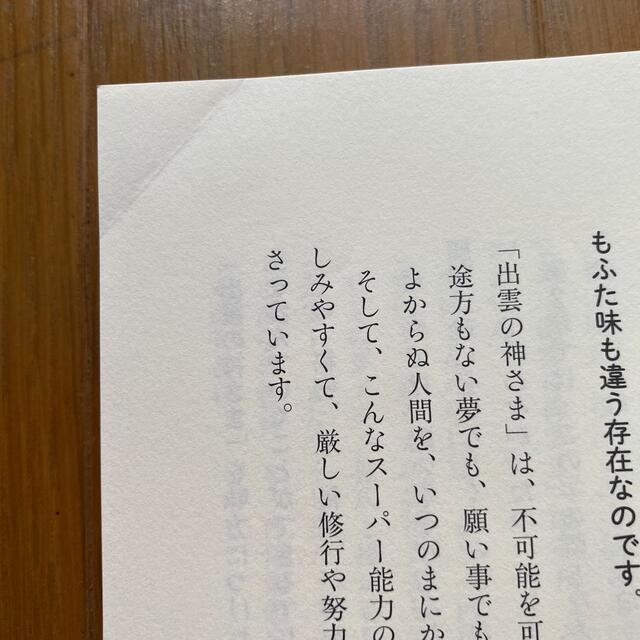 もふた味も違う存在なのです。
「出雲の神さま」は、不可能を可
途方もない夢でも、願い事でも
よからぬ人間を、いつのまにか
そして、こんなスーパー能力の
しみやすくて、厳しい修行や努力
さっています。